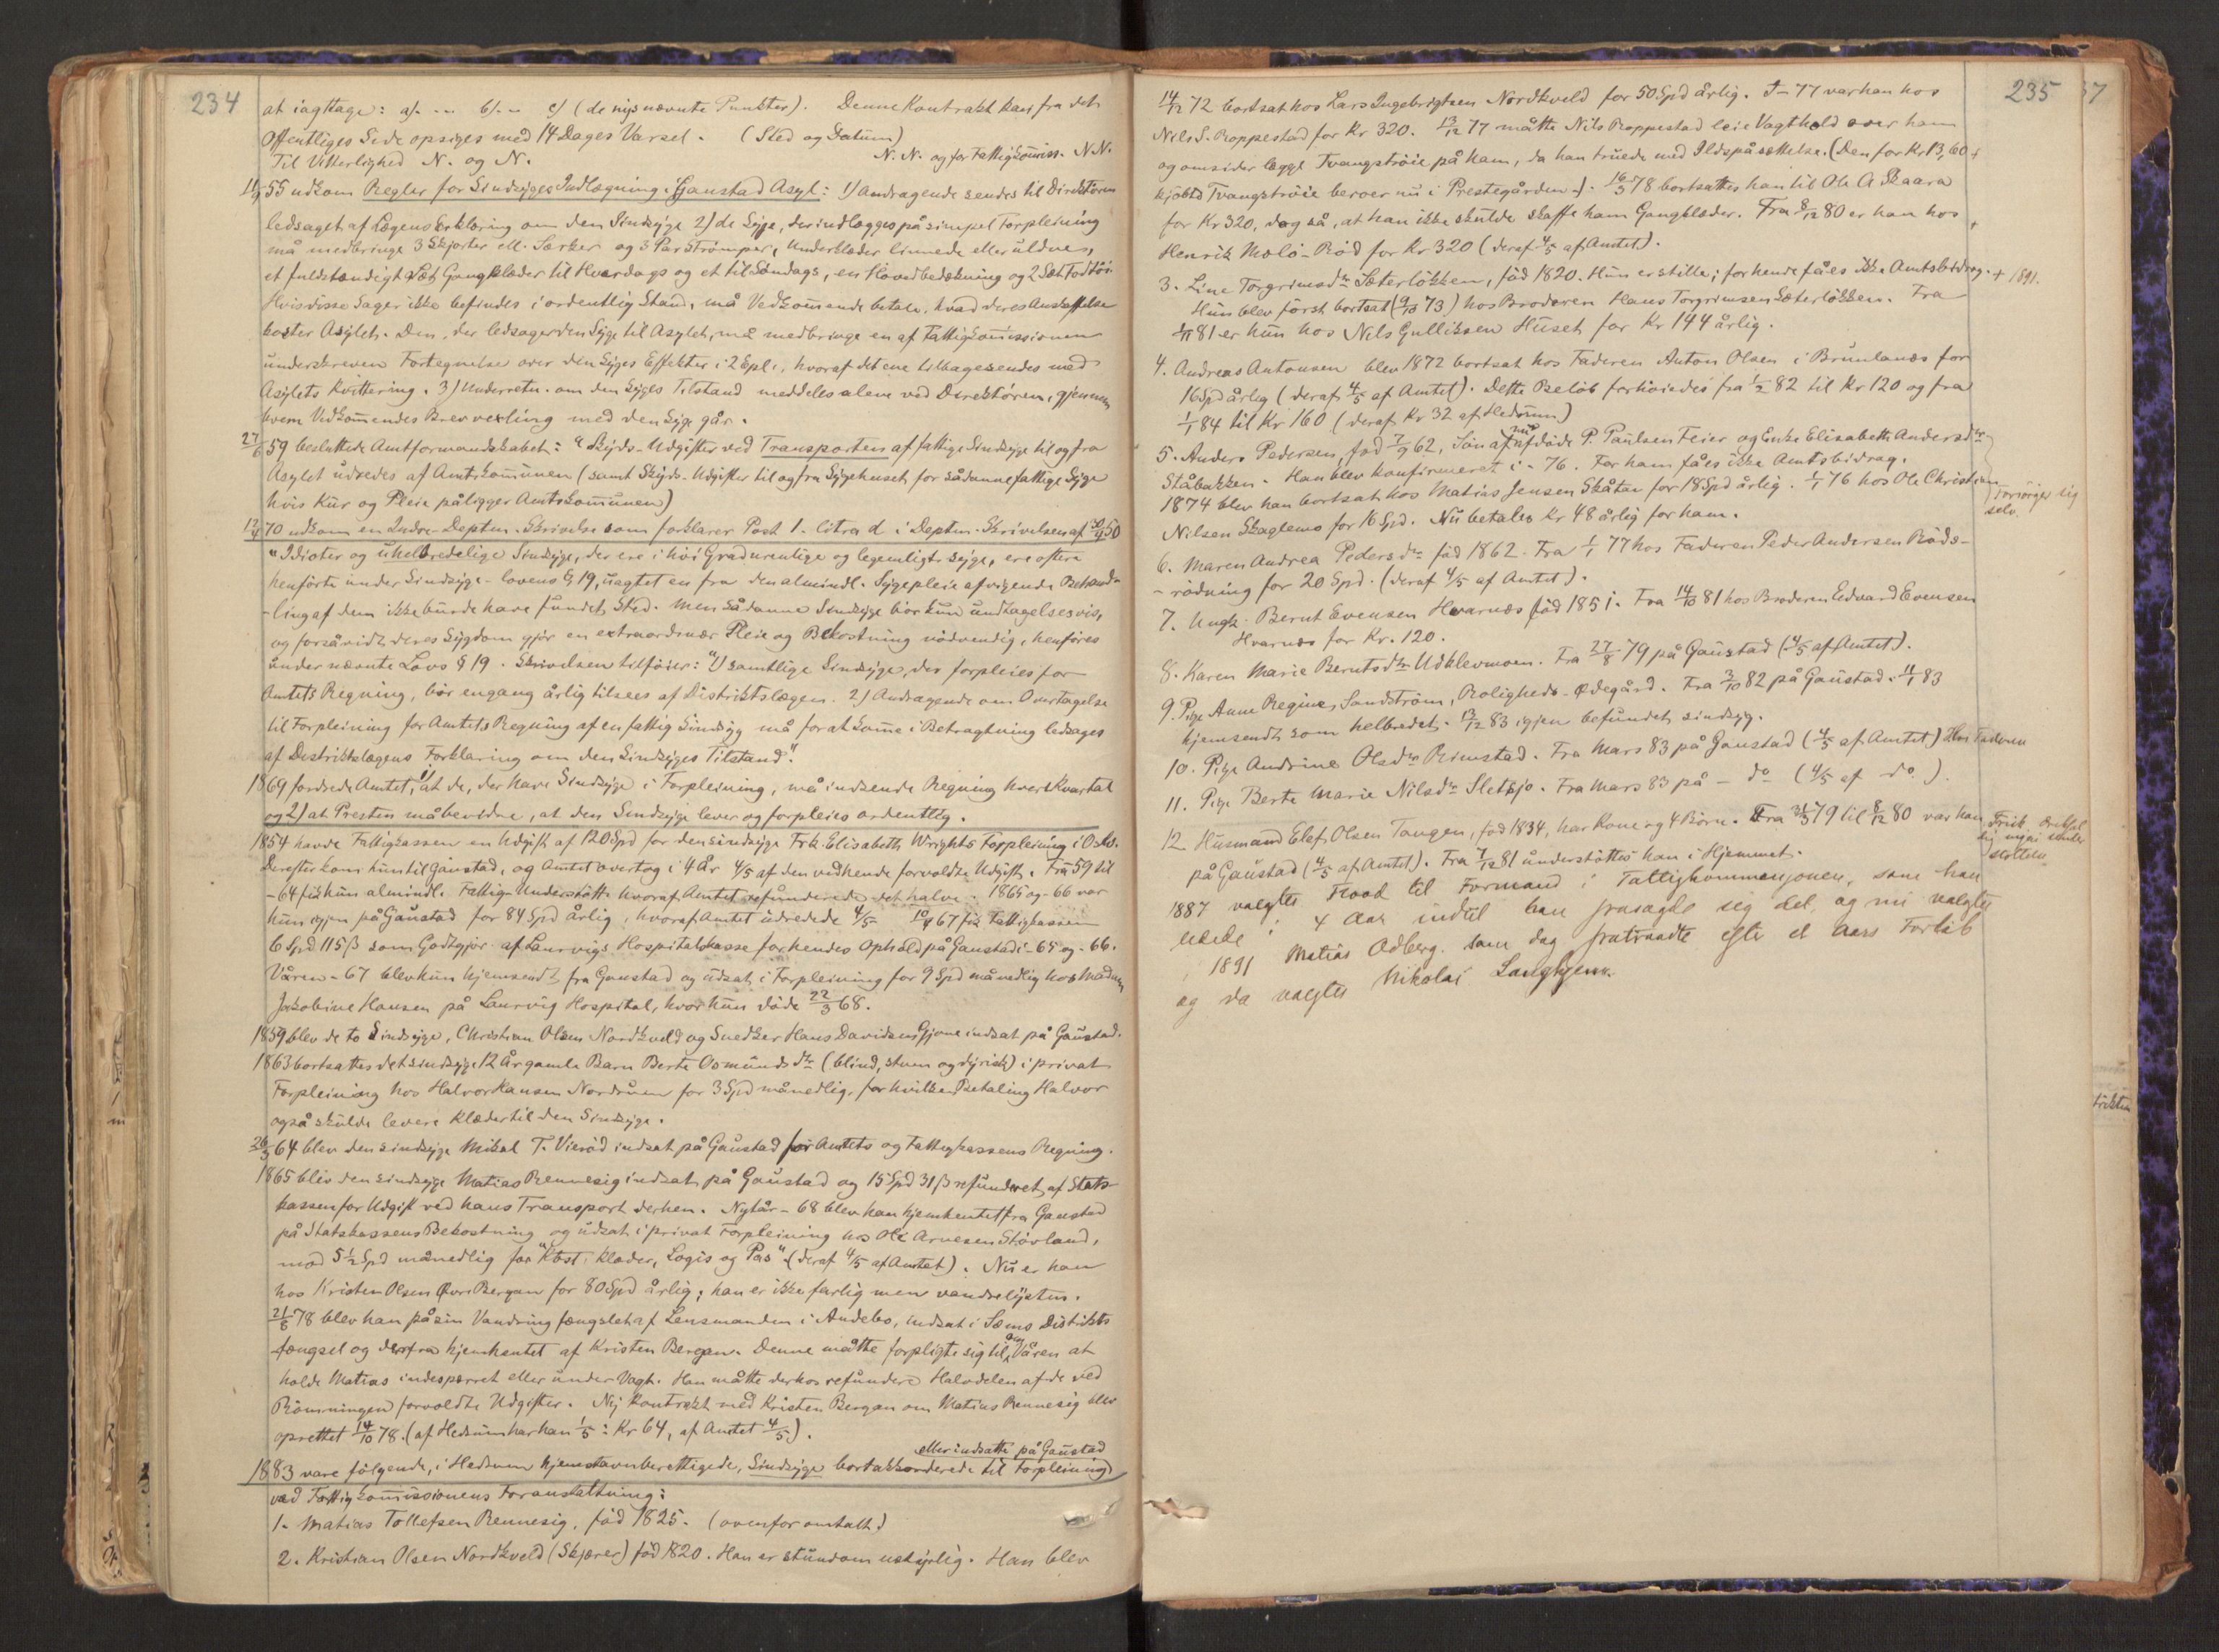 234
at iagttage: a/. --- b/. -- c/ (de nysnævnte Punkter). Denne Kontrakt kan fra det
Offentliges Side opsiges med 14 Dages Varsel. (Sted og Datum)
Til Vitterlighed N. og N. N. N. og for Fattigkom̅iss. N.N.
11/9 55 udkom Regler for Sindsyges Indlægning i Gaustad Asyl: 1) Andragende sendes til Direktøren
ledsaget af Lægens Erklæring om den Sindsyge 2) de Syge, der indlægges på simpel Forpleining
må medbringe 3 Skjorter ell. Særker og 3 Par Strømper, Underklæder linnede eller uldne,
et fuldstændigt Sæt Gangklæder til Hverdags og et til Søndags, en Hovedbedækning og 2 Sæt Fodtøi.
Hvis disse Sager ikke befindes i ordentlig Stand, må Vedkom̅ende betale, hvad deres Anskaffelse
koster Asylet. Den, der ledsager den Syge til Asylet, må medbringe en af Fattigkom̅issionen
underskreven Fortegnelse over den Syges Effekter i 2 Expl., hvoraf det ene tilbagesendes med
Asylets Kvittering. 3) Underretn. om den Syges Tilstand meddeles alene ved Direktøren, gjennem
hvem Vedkom̅endes Brevvexling med den Syge går.
27/6 59 besluttede Amtformandskabet: "Skyds-Udgifter ved Transporten af fattige Sindsyge til og fra
Asylet udredes af Amtskom̅unen (samt Skyds-Udgifter til og fra Sygehuset for sådanne fattige Syge
hvis Kur og Pleie påligger Amtskom̅unen)
12/4 70 udkom en Indre-Deptm. Skrivelse som forklarer Post 1. litra d i Deptm. Skrivelsen af 30/11 50
"Idioter og uhelbredelige Sindsyge, der ere i høi Grad urenlige og legemligt syge, ere oftere
henførte under Sindsyge-lovens § 19, uagtet en fra den almindl. Sygepleie afvigende Behand-
-ling af dem ikke burde have fundet Sted. Men sådanne Sindsyge bør kun undtagelsesvis,
og forsåvidt deres Sygdom gjør en extraordinær Pleie og Bekostning nødvendig, henføres
under nævnte Lovs § 19. Skrivelsen tilføier: "1) samtlige Sindsyge, der forpleies for
Amtets Regning, bør engang årlig tilsees af Distriktslægen. 2) Andragende om Overtagelse
til Forpleining for Amtets Regning af en fattig Sindsyg må for at kom̅e i Betragtning ledsages
af Distriktslægens Forklaring om den Sindsyges Tilstand".
1869 fordrede Amtet, 1) at de, der have Sindsyge i Forpleining, må indsende Regning hvert Kvartal
og 2) at Presten må bevidne, at den Sindsyge lever og forpleies ordentlig.
1854 havde Fattigkassen en Udgift af 120 Spd for den sindsyge Frk. Elisabeth Wrights Forpleining i Oslo.
Derefter kom hun til Gaustad, og Amtet overtog i 4 År 4/5 af den ved hende forvoldte Udgift. Fra 59 til
-64 fik hun almindl. Fattig-Understøtt. hvoraf Amtet refunderede det halve. 1865 og -66 var
hun igjen på Gaustad for 84 Spd årlig, hvoraf Amtet udredede 4/5 10/4 67 fik Fattigkassen
6 Spd 115 ß som Godtgjør. af Laurvigs Hospitalskasse for hendes Ophold på Gaustad i -65 og -66.
Våren -67 blev hun hjemsendt fra Gaustad og udsat i Forpleining for 9 Spd månedlig hos Madam
Jakobine Hansen på Laurvig Hospital, hvor hun døde 22/3 68.
1859 blev de to Sindsyge, Christian Olsen Nordkveld og Snedker Hans Davidsen Gjone indsat på Gaustad.
1863 bortsattes det sindsyge 12 År gamle Barn Berte Osmundsdtr (blind, stum og dyrisk) i privat
Forpleining hos Halvor Hansen Nordrum for 3 Spd månedlig, for hvilken Betaling Halvor
også skulde levere Klæder til den Sindsyge.
26/9 64 blev den sindsyge Mikal T. Vierød indsat på Gaustad for Amtets og Fattigkassens Regning.
1865 blev den sindsyge Matias Rennesig indsat på Gaustad og 15 Spd 31 ß refunderet af Stats-
kassen for Udgift ved hans Transport derhen. Nytår -68 blev han hjemhentet fra Gaustad
på Statskassens Bekostning og udsat i privat Forpleining hos Ole Arvesen Støvland,
mod 5 1/2 Spd månedlig for "Kost, Klæder, Logis og Pas" (deraf 4/5 af Amtet). Nu er han
hos Kristen Olsen Øvre Bergan for 80 Spd årlig; han er ikke farlig men vandrelysten.
21/8 78 blev han på sin Vandring fængslet af Lensmanden i Andebo, indsat i Sæms Distrikts
fængsel og derfra hjemhentet af Kristen Bergan. Denne måtte forpligte sig til om Våren at
holde Matias indespærret eller under Vagt. Han måtte derhos refundere Halvdelen af de ved
Rømningen forvoldte Udgifter. Ny Kontrakt med Kristen Bergan om Matias Rennesig blev
oprettet 14/10 78. (af Hedrum har han 1/5: Kr 64, af Amtet 4/5).
eller indsatte på Gaustad
1883 vare følgende, i Hedrum hjemstavnberettigede, Sindsyge bortakkorderede til Forpleining
ved Fattigkom̅issionens Foranstaltning:
1. Matias Tollefsen Rennesig, fød 1825. (ovenfor omtalt)
2. Kristian Olsen Nordkveld (Skjærer) fød 1820. Han er stundom ustyrlig. Han blev
235
14/12 72 bortsat hos Lars Ingebrigtsen Nordkveld for 50 Spd årlig. I -77 var han hos
Nils S. Roppestad for Kr 320. 13/12 77 måtte Nils Roppestad leie Vagthold over ham
og omsider lægge Tvangstrøie på ham, da han truede med Ildspåsættelse. (Den for Kr 13,60
kjøbte Tvangstrøie beroer nu i Prestegården). 16/3 78 bortsattes han til Ole A Skaara
for Kr 320, dog så, at han ikke skulde skaffe ham Gangklæder. Fra 8/12 80 er han hos
Henrik Molø-Rød for Kr 320 (deraf 4/5 af Amtet).
3. Line Torgrimsdtr Sæterløkken, fød 1820. Hun er stille; for hende fåes ikke Amtsbidrag. + 1891.
Hun blev først bortsat (9/10 73) hos Broderen Hans Torgrimsen Sæterløkken. Fra
1/11 81 er hun hos Nils Gulliksen Huset for Kr 144 årlig.
4. Andreas Antonsen blev 1872 bortsat hos Faderen Anton Olsen i Brunlanæs for
16 Spd årlig (deraf 4/5 af Amtet). Dette Beløb forhøiedes fra 1/2 82 til Kr 120 og fra
1/1 84 til Kr 160 (deraf Kr 32 af Hedrum)
5. Anders Pedersen, fød 7/9 62, Søn af nu afdøde P. Paulsen Feier og Enke Elisabeth Andersdtr
Ståbakken. Han blev konfirmeret i -76. For ham fåes ikke Amtsbidrag.
1874 blev han bortsat hos Matias Jensen Skåtan for 18 Spd årlig. 1/1 76 hos Ole Christian
Forsørger sig
selv.
Nilsen Skaglemo for 16 Spd. Nu betales Kr 48 årlig for ham.
6. Maren Andrea Pedersdtr fød 1862. Fra 1/1 77 hos Faderen Peder Andersen Røds-
-rødning for 20 Spd. (deraf 4/5 af Amtet).
7. Ungk. Bernt Evensen Hvarnæs fød 1851. Fra 14/10 81 hos Broderen Edvard Evensen
Hvarnæs for Kr. 120.
8. Karen Marie Berntsdtr Udklevmoen. Fra 27/8 79 på Gaustad (4/5 af Amtet).
9. Pige Anne Regine Sandstrøm, Roligheds-Ødegård. Fra 3/10 82 på Gaustad. 11/1 83
hjemsendt som helbredet. 13/12 83 igjen befundet sindsyg.
10. Pige Andrine Olsdtr Rimstad. Fra Mars 83 på Gaustad (4/5 af Amtet) Hos Faderen
11. Pige Berte Marie Nilsdtr Sletsjø. Fra Mars 83 på - do (4/5 af do).
12 Husmand Elef Olsen Tangen, fød 1834, har Kone og 4 Børn. Fra 31/3 79 til 8/12 80 var han
Frisk
på Gaustad (4/5 af Amtet). Fra 7/12 81 understøttes han i Hjemmet.
1887 valgtes Flood til Formand i Fattigkommisjonen, som han
ledede i 4 Aar indtil han frasagde sig det, og nu valgtes
i 1891 Matias Odberg. som dog fratraadte efter et Aars Forløb
og da valgtes Nikolai Langhjem.
37